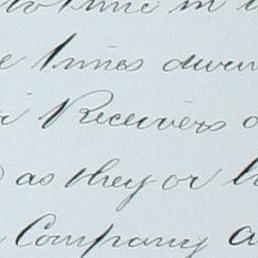 time in
times during
Receivers
as they or
Company